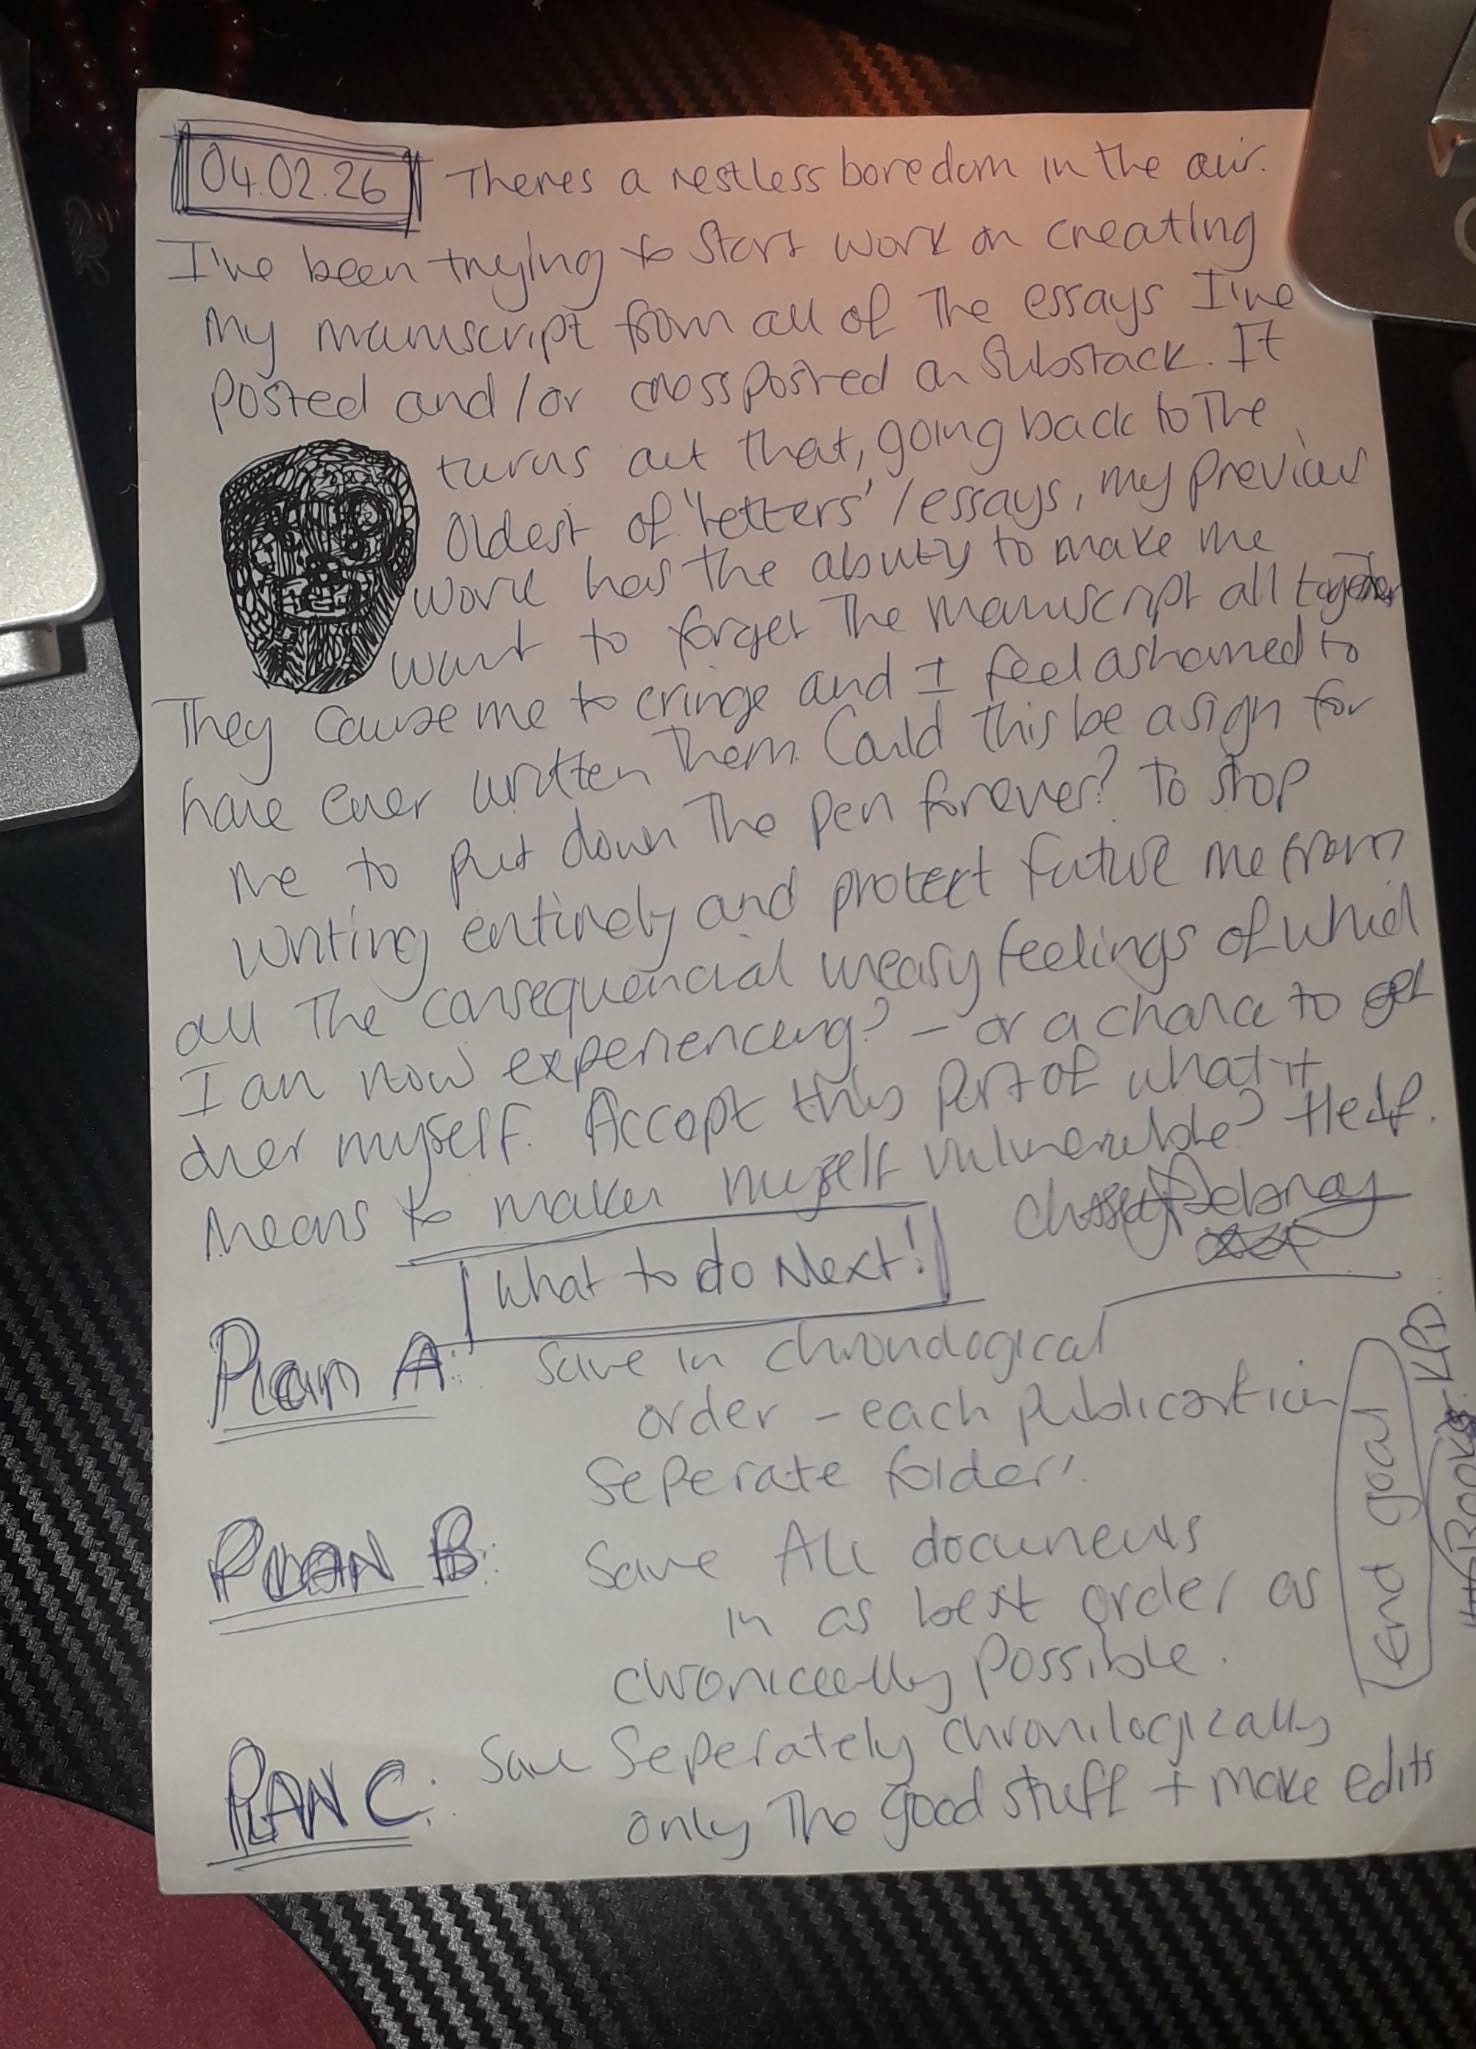 04.02.26 Theres a restless boredom in the air.
I've been trying to start work on creating
my manuscript from all of the essays I've
posted and/or crossposted on Substack. It
turns out that, going back to the
oldest of 'letters'/essays, my previous
work has the ability to make me
want to forget the manuscript all together
They cause me to cringe and I feel ashamed to
have ever written them. Could this be a sign for
me to put down the pen forever? To stop
writing entirely and protect future me from
all the consequencial uneasy feelings of which
I am now experiencing? - or a chance to get
over myself. Accept this part of what it
means to maker myself vulnerable? Help.
What to do Next!
Plan A: Save in chronological
order - each publication
seperate folder.
PLAN B: Save All documents
in as best order as
possible.
PLAN C: Save Seperately chronilogically
only the good stuff + make edits
End goal
Books - KDP.